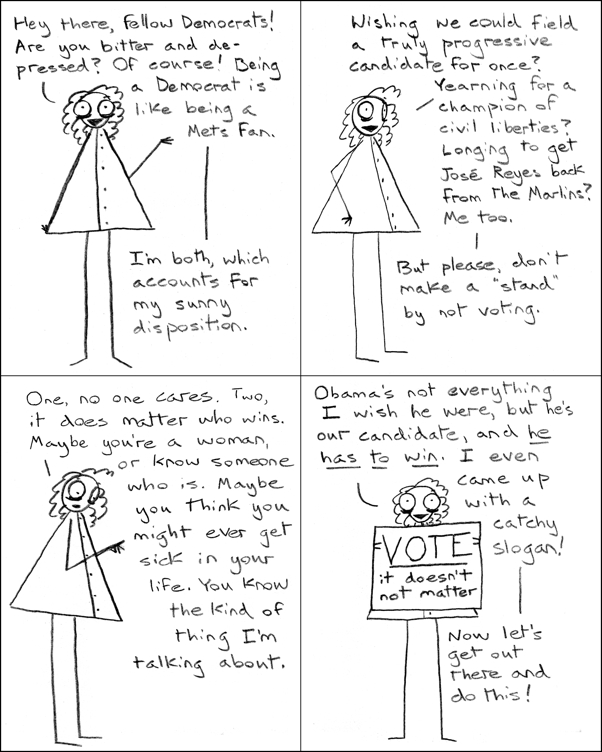 Hey there, fellow Democrats!
Are you bitter and de-
pressed? Of course! Being
a Democrat is
like being a
Mets Fan.
I'm both, which
accounts for
my sunny
disposition.
Wishing we could field
a truly progressive
candidate for once?
Yearning for a
champion of
civil liberties?
Longing to get
José Reyes back
from the Marlins?
Me too.
But please, don't
make a "stand"
by not voting.
One, no one cares. Two,
it does matter who wins.
Maybe you're a woman,
or know someone
who is. Maybe
you think you
might ever get
sick in your
life. You know
the kind of
thing I'm
talking about.
Obama's not everything
I wish he were, but he's
our candidate, and he
has to win. I even
came up
with a
catchy
slogan!
VOTE
it doesn't
not matter
Now let's
get out
there and
do this!